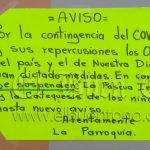 =AVISO=
or la contingencia del COV
y sus repercusiones los O
el país y el de Nuestra Di
an dictado medidas. En con
se suspenden: La Pascua
y la Catequesis de los niñ
hasta nuevo aviso.
Atentamente
La Parroquia.